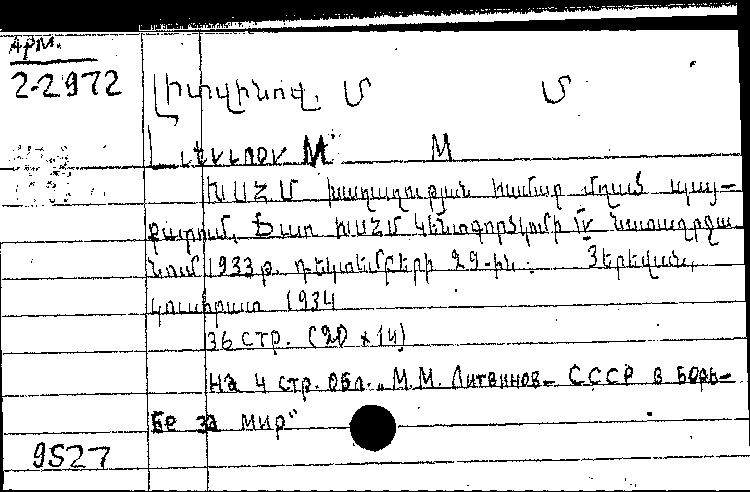 Арм.
2-2972
Լիտվինով, Մ Մ
М М
ԽՍՀՄ խաղաղության համար մղած պայ-
քարում, Ճառ ԽՍՀՄ Կենտգործկոմի IV նստաշրջա
նում 1933 թ. դեկտեմբերի 29-ին: Յերեվան,
կուսհրատ 1934
36 стр. (20 x 14)
На 4 стр. обл. „М.М. Литвинов- СССР в борь-
бе за мир"
9527